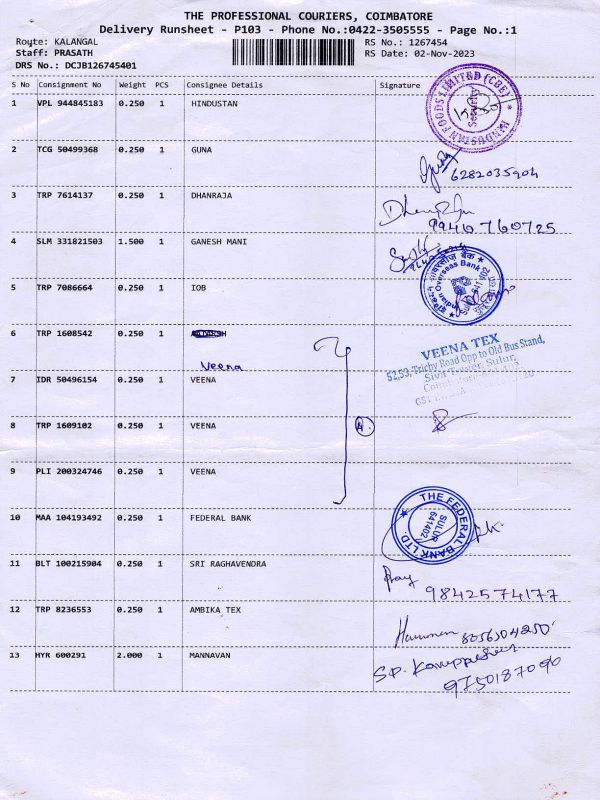 THE PROFESSIONAL COURIERS, COIMBATORE
Delivery Runsheet - P103 - Phone No.:0422-3505555 - Page No.:1
Route: KALANGAL RS No.: 1267454
Staff: PRASATH RS Date: 02-Nov-2023
DRS No.: DCJB126745401
S No Consignment No Weight PCS Consignee Details Signature
1 VPL 944845183 0.250 1 HINDUSTAN
HINDUSTAN FOODS LIMITED (CBE)
Security
2 TCG 50499368 0.250 1 GUNA
6282035904
3 TRP 7614137 0.250 1 DHANRAJA
9940760725
4 SLM 331821503 1.500 1 GANESH MANI
5 TRP 7086664 0.250 1 IOB
Indian Overseas Bank
6 TRP 1608542 0.250 1
Veena
VEENA TEX
52,53, Trichy Road Opp to Old Bus Stand,
Siva Tower, Sulur,
7 IDR 50496154 0.250 1 VEENA
8 TRP 1609102 0.250 1 VEENA
4.
9 PLI 200324746 0.250 1 VEENA
10 MAA 104193492 0.250 1 FEDERAL BANK
THE FEDERAL BANK LTD
SULUR
641402
11 BLT 100215904 0.250 1 SRI RAGHAVENDRA
9842574177
12 TRP 8236553 0.250 1 AMBIKA TEX
8056504250
13 HYR 600291 2.000 1 MANNAVAN
S.P.
9750187096